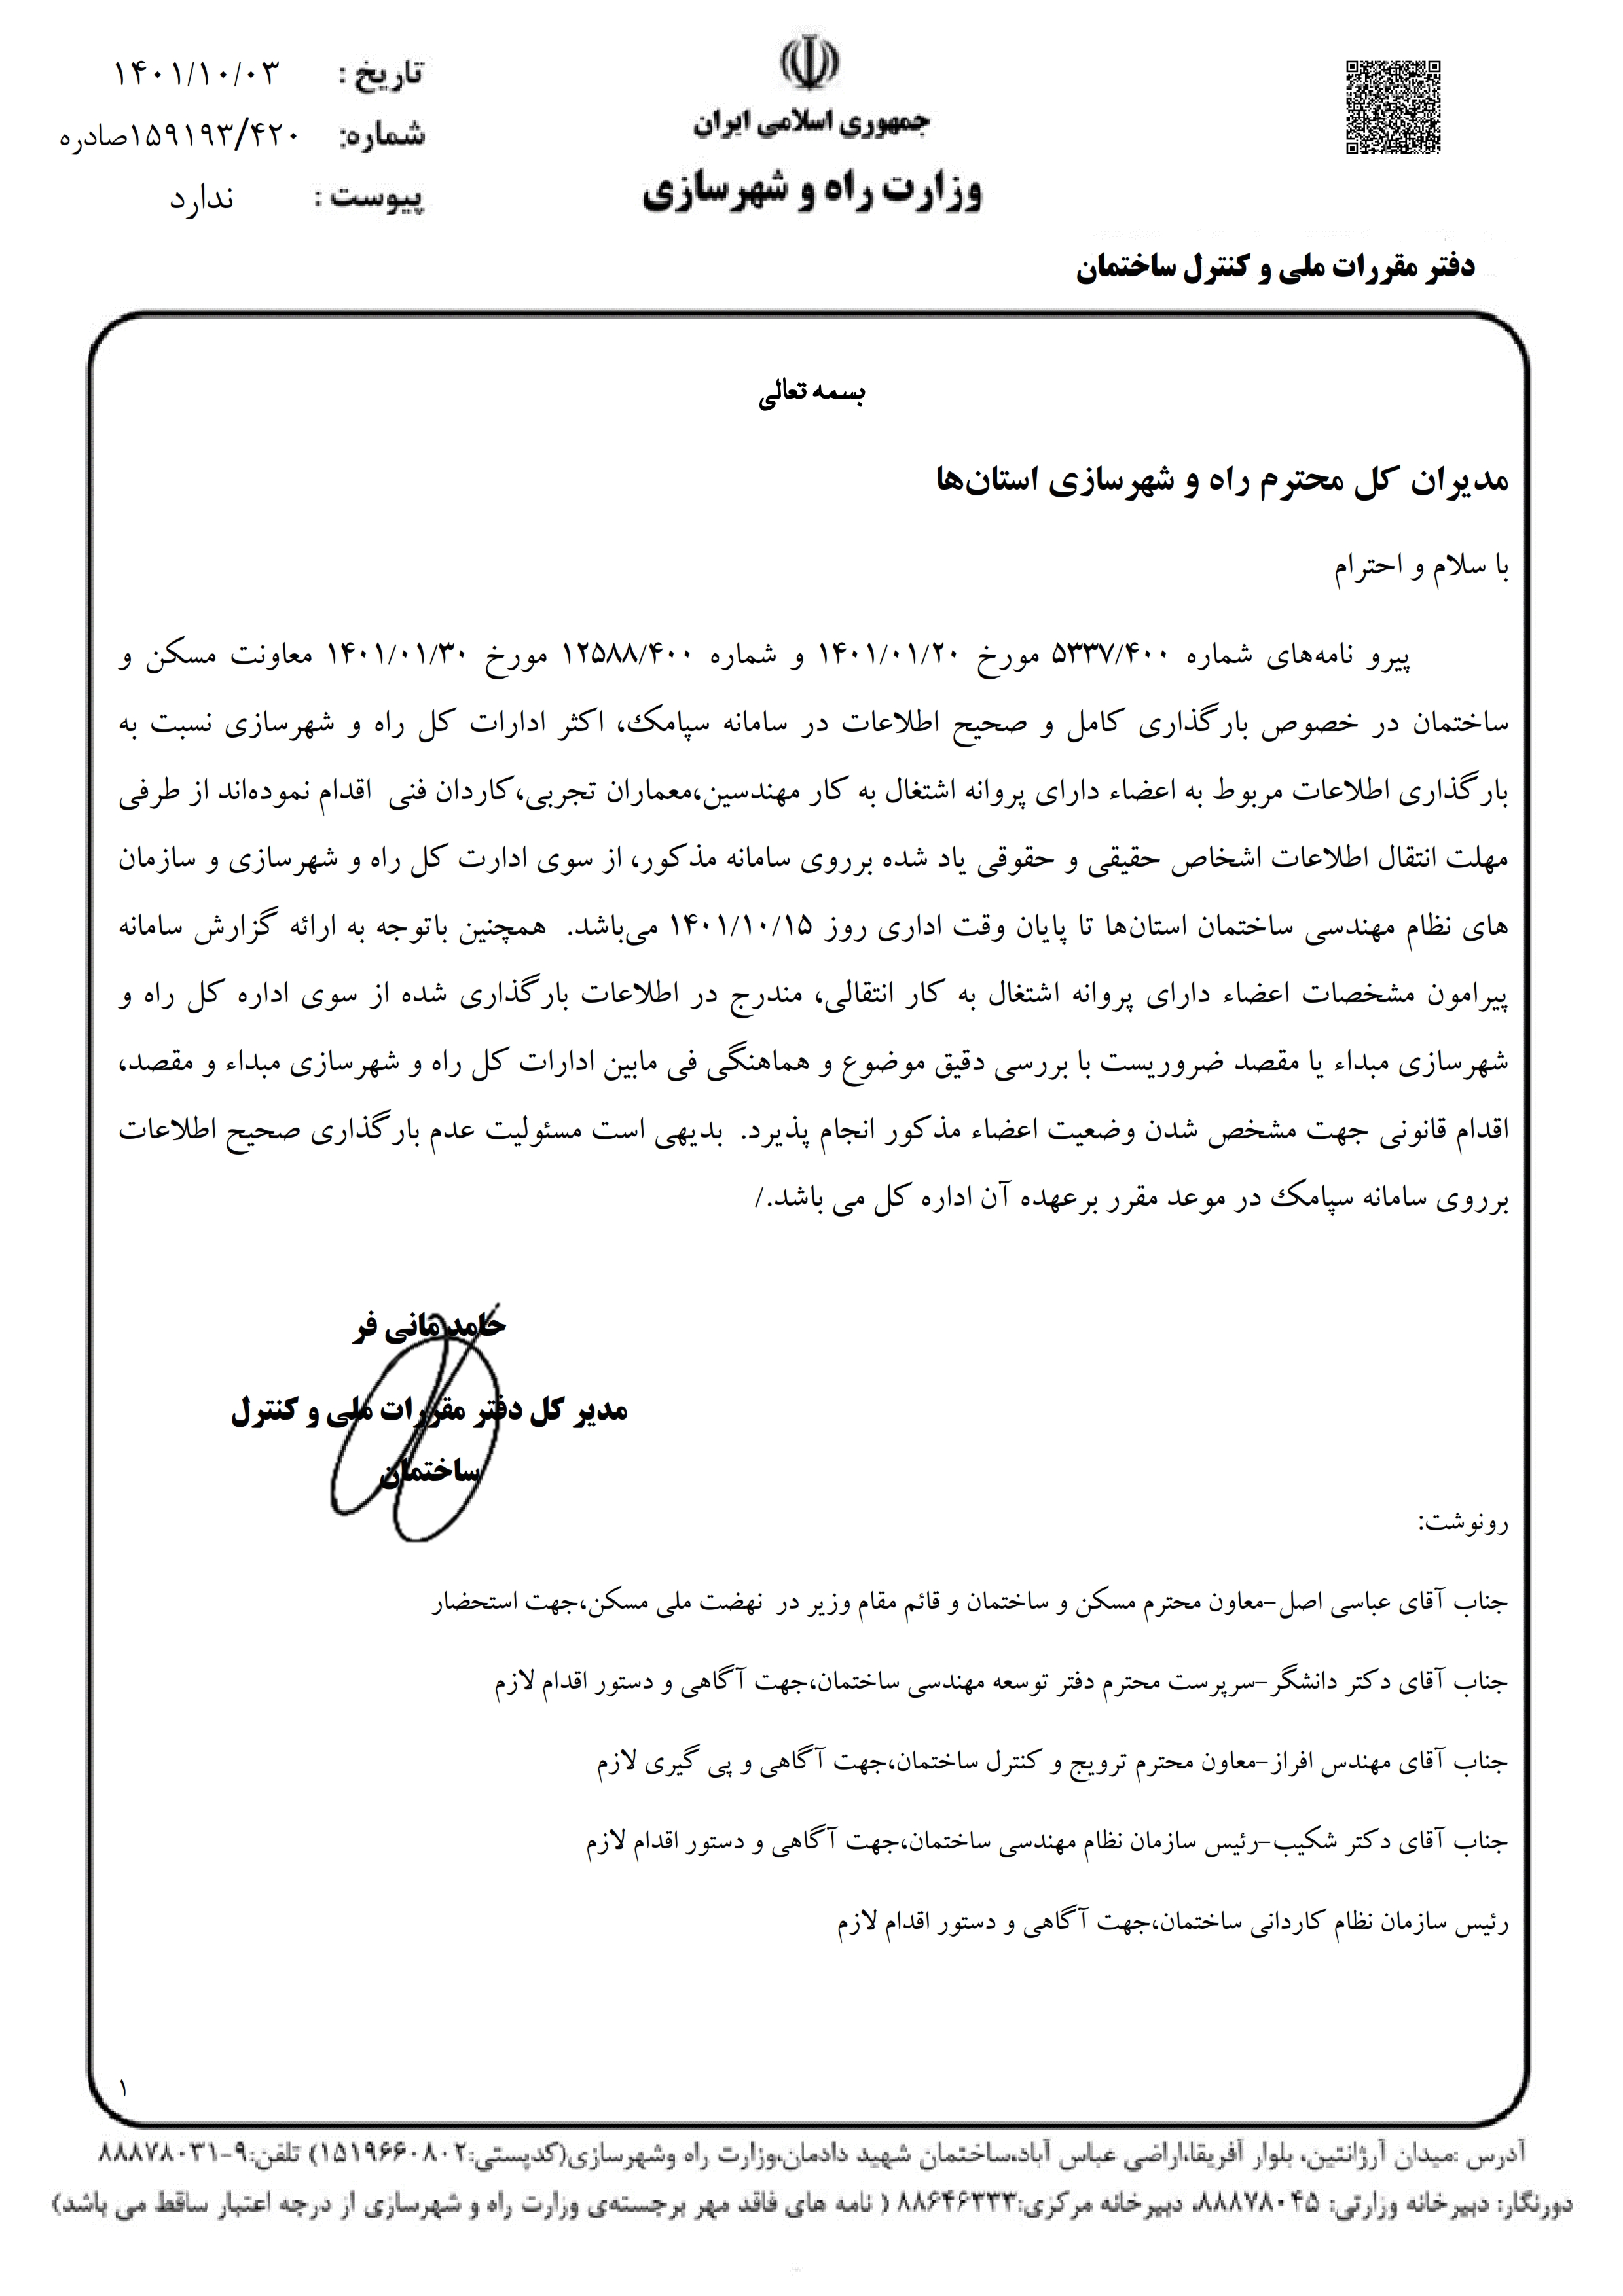 تاریخ : ۱۴۰۱/۱۰/۰۳
شماره: ۱۵۹۱۹۳/۴۲۰صادره
پیوست : ندارد
جمهوری اسلامی ایران
وزارت راه و شهرسازی
دفتر مقررات ملی و کنترل ساختمان
بسمه تعالی
مدیران کل محترم راه و شهرسازی استان‌ها
با سلام و احترام
پیرو نامه‌های شماره ۵۳۳۷/۴۰۰ مورخ ۱۴۰۱/۰۱/۲۰ و شماره ۱۲۵۸۸/۴۰۰ مورخ ۱۴۰۱/۰۱/۳۰ معاونت مسکن و
ساختمان در خصوص بارگذاری کامل و صحیح اطلاعات در سامانه سپامک، اکثر ادارات کل راه و شهرسازی نسبت به
بارگذاری اطلاعات مربوط به اعضاء دارای پروانه اشتغال به کار مهندسین،معماران تجربی،کاردان فنی اقدام نموده‌اند از طرفی
مهلت انتقال اطلاعات اشخاص حقیقی و حقوقی یاد شده برروی سامانه مذکور، از سوی ادارت کل راه و شهرسازی و سازمان
های نظام مهندسی ساختمان استان‌ها تا پایان وقت اداری روز ۱۴۰۱/۱۰/۱۵ می‌باشد. همچنین باتوجه به ارائه گزارش سامانه
پیرامون مشخصات اعضاء دارای پروانه اشتغال به کار انتقالی، مندرج در اطلاعات بارگذاری شده از سوی اداره کل راه و
شهرسازی مبداء یا مقصد ضروریست با بررسی دقیق موضوع و هماهنگی فی مابین ادارات کل راه و شهرسازی مبداء و مقصد،
اقدام قانونی جهت مشخص شدن وضعیت اعضاء مذکور انجام پذیرد. بدیهی است مسئولیت عدم بارگذاری صحیح اطلاعات
برروی سامانه سپامک در موعد مقرر برعهده آن اداره کل می باشد./
حامد مانی فر
مدیر کل دفتر مقررات ملی و کنترل
ساختمان
رونوشت:
جناب آقای عباسی اصل-معاون محترم مسکن و ساختمان و قائم مقام وزیر در نهضت ملی مسکن،جهت استحضار
جناب آقای دکتر دانشگر-سرپرست محترم دفتر توسعه مهندسی ساختمان،جهت آگاهی و دستور اقدام لازم
جناب آقای مهندس افراز-معاون محترم ترویج و کنترل ساختمان،جهت آگاهی و پی گیری لازم
جناب آقای دکتر شکیب-رئیس سازمان نظام مهندسی ساختمان،جهت آگاهی و دستور اقدام لازم
رئیس سازمان نظام کاردانی ساختمان،جهت آگاهی و دستور اقدام لازم
۱
آدرس :میدان آرژانتین، بلوار آفریقا،اراضی عباس آباد،ساختمان شهید دادمان،وزارت راه وشهرسازی(کدپستی:۱۵۱۹۶۶۰۸۰۲) تلفن:۹-۸۸۸۷۸۰۳۱
دورنگار: دبیرخانه وزارتی: ۸۸۸۷۸۰۴۵، دبیرخانه مرکزی:۸۸۶۴۶۳۳۳ ( نامه های فاقد مهر برجسته‌ی وزارت راه و شهرسازی از درجه اعتبار ساقط می باشد)